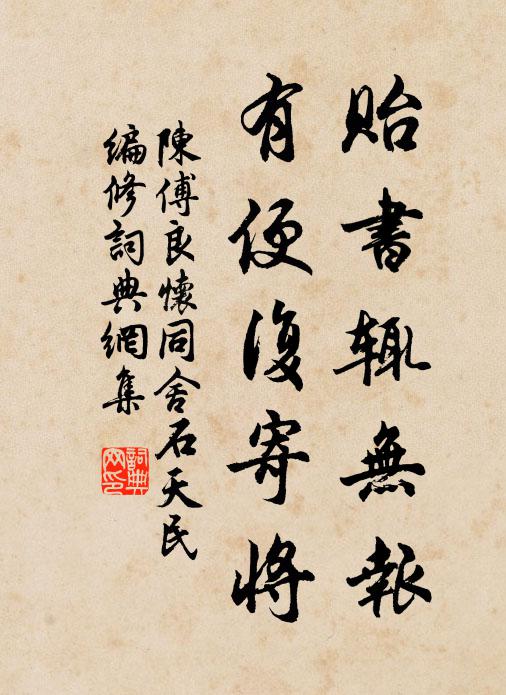 貽書輒無報
有便復寄將
陳傅良懷同舍石天民
編修詞典網集
詞典网印